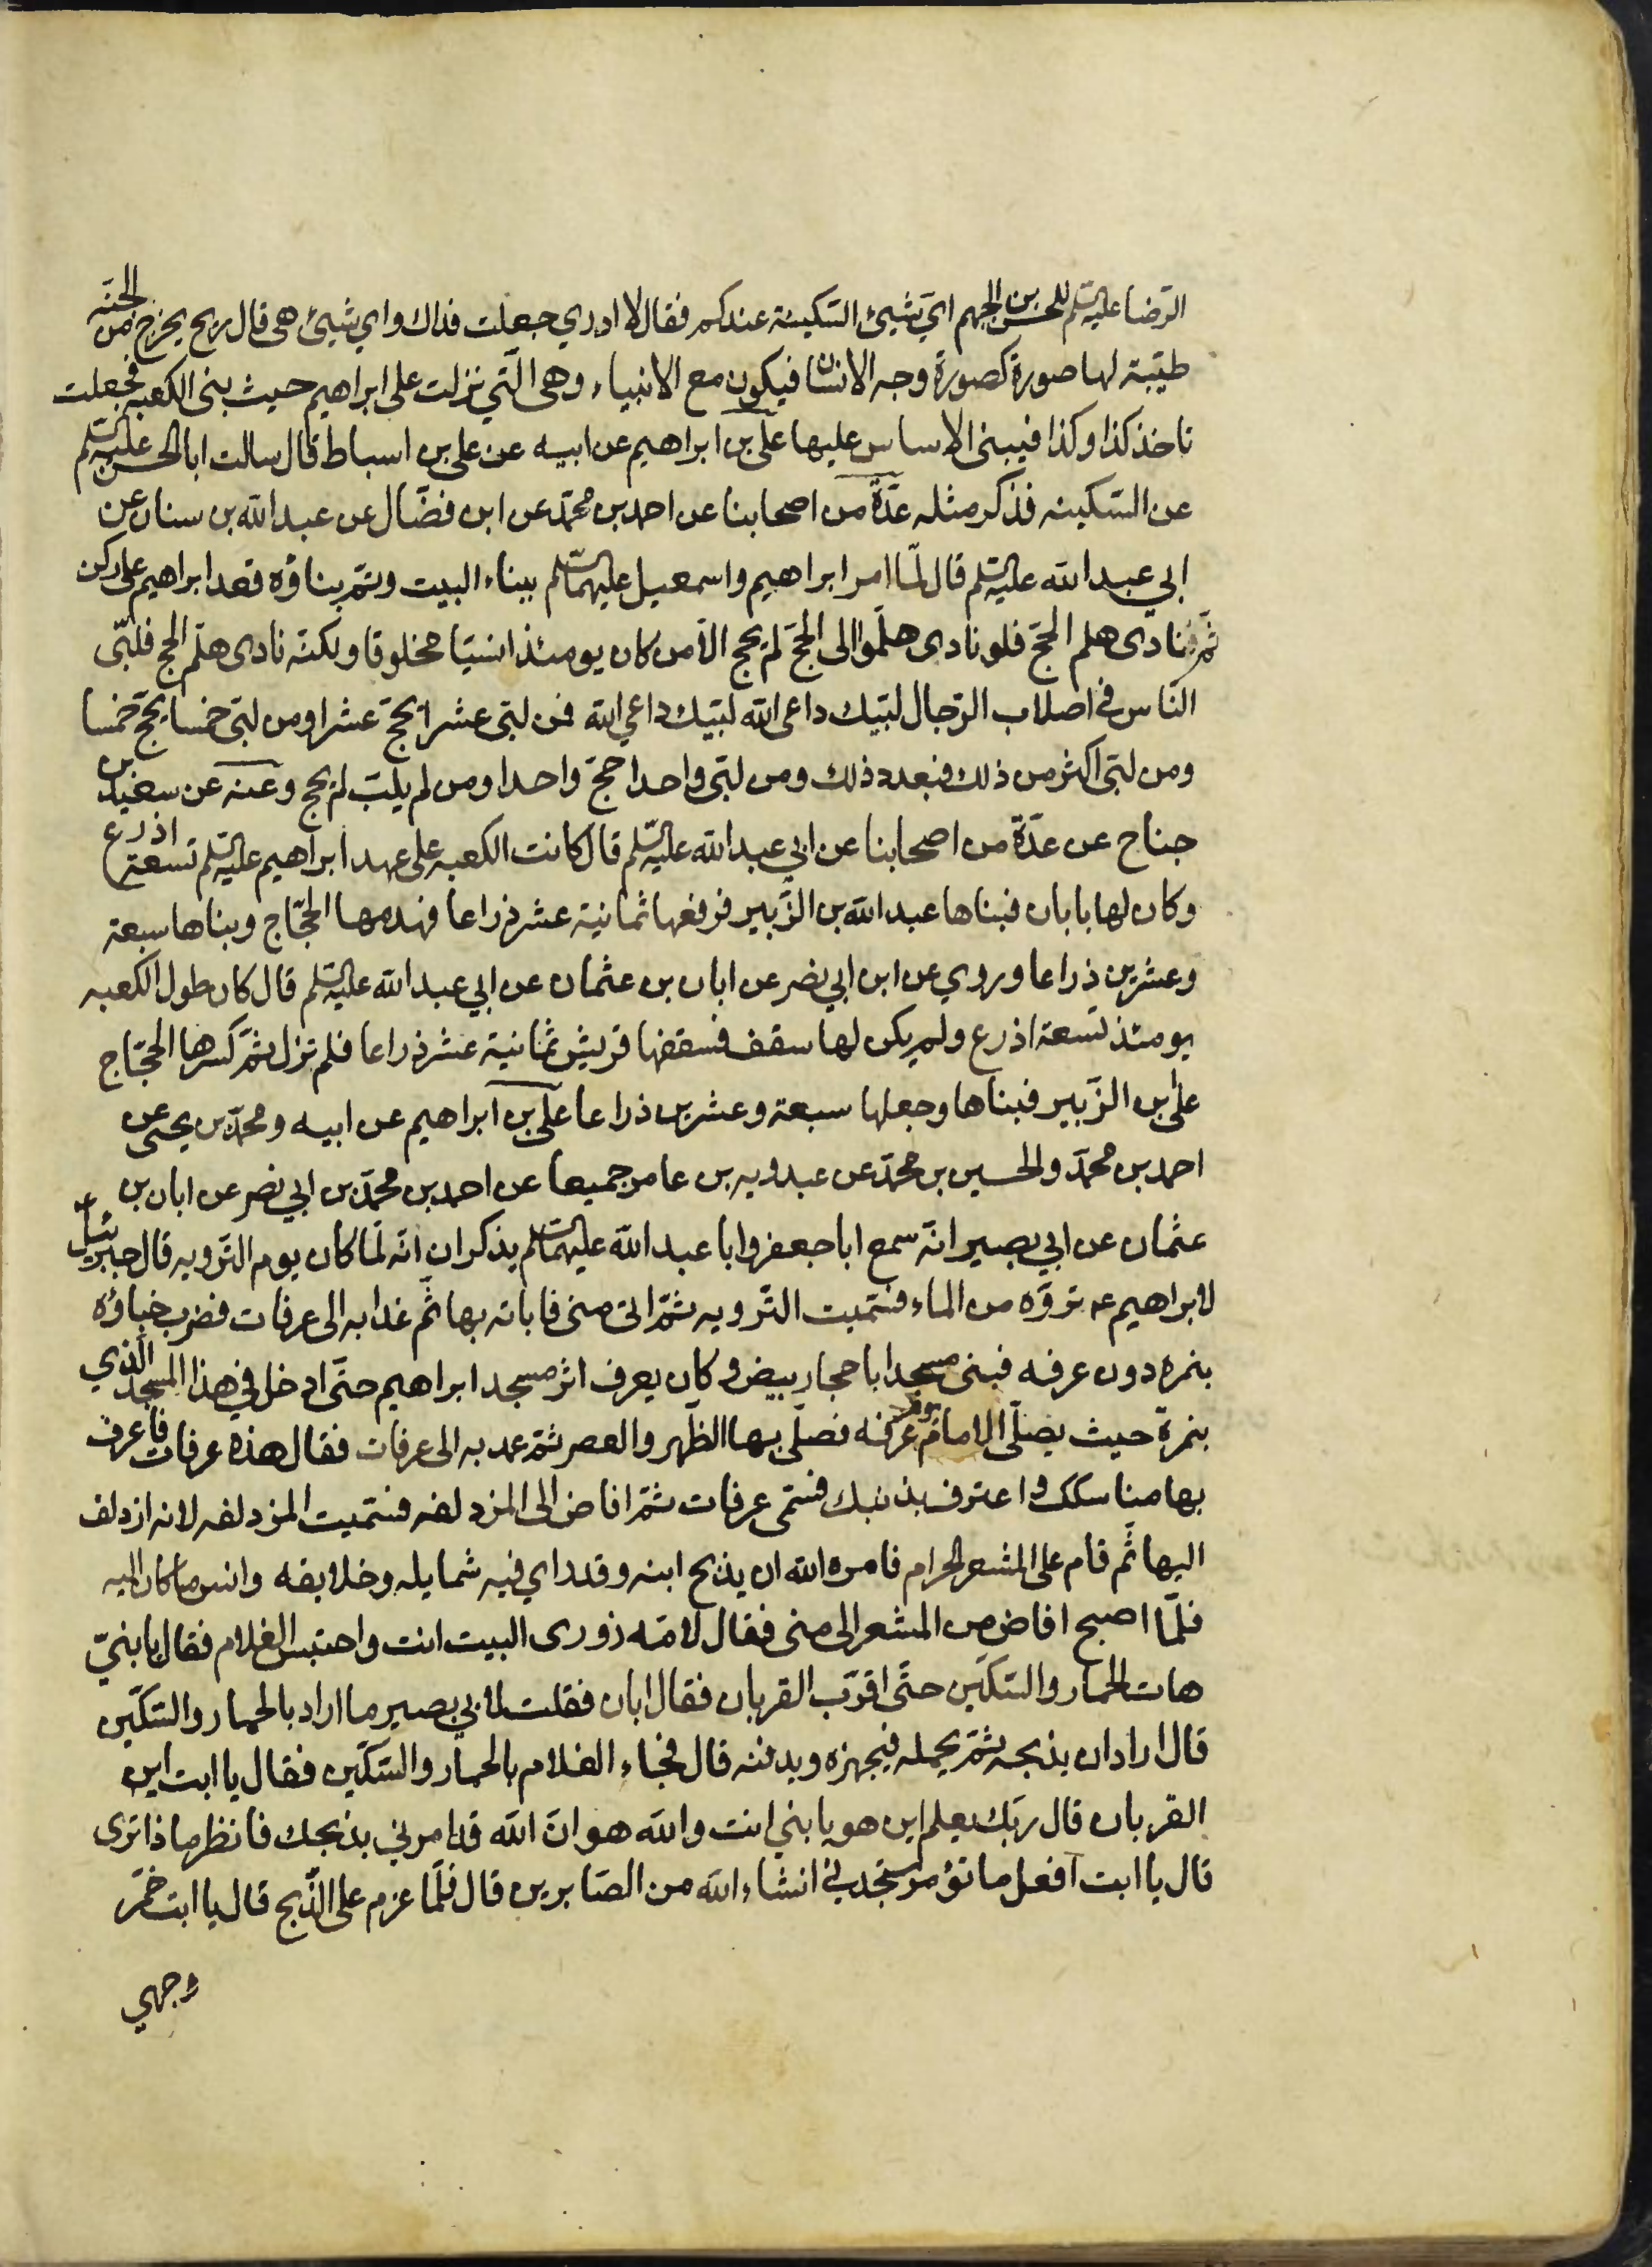 الرّضا عليه السلم للحسن بن الجهم ايّ شيئ السّكينة عندكم فقال لا ادري جعلت فداك واي شيئ هى قال ريح يخرج من الجنّه
طيّبة لها صورة كصورة وجه الانسان فيكون مع الانبياء وهى الّتي نزلت على ابراهيم حيث بنى الكعبه فجعلت
تاخذ كذا وكذا فيبنى الاساس عليها على بن ابراهيم عن ابيه عن على بن اسباط قال سالت ابا الحسن عليه السلم
عن السّكينه فذكر مثله عدّة من اصحابنا عن احمد بن محمّد عن ابن فضّال عن عبد الله بن سنان عن
ابي عبد الله عليه السلم قال لمّا امر ابراهيم واسمعيل عليهما السلم ببناء البيت وتمّ بناؤه قعد ابراهيم على ركن
ثمّ فنادى هلم الحجّ فلو نادى هلمّوا الى الحجّ لم يحج الّا من كان يومئذ انسيّا مخلوقا ولكنّه نادى هلمّ الحج فلبّى
النّاس فى اصلاب الرّجال لبّيك داعى الله لبّيك داعي الله فمن لبّى عشرا يحجّ عشرا ومن لبّى خمسا يحجّ خمسا
ومن لبّى اكثر من ذلك فبعدد ذلك ومن لبّى واحدا حجّ واحدا ومن لم يلبّ لم يحج وعنه عن سعيد بن
جناح عن عدّة من اصحابنا عن ابي عبد الله عليه السلم قال كانت الكعبه على عهد ابراهيم عليه السلم تسعة اذرع
وكان لها بابان فبناها عبد الله بن الزّبير فرفعها ثمانية عشر ذراعا فهدمها الحجّاج وبناها سبعة
وعشرين ذراعا وروي عن ابن ابي نصر عن ابان بن عثمان عن ابي عبد الله عليه السلم قال كان طول الكعبه
يومئذ تسعة اذرع ولم يكن لها سقف فسقفها قريش ثمانية عشر ذراعا فلم تزل ثمّ كسرها الحجّاج
على بن الزّبير فبناها وجعلها سبعة وعشرين ذراعا على بن ابراهيم عن ابيه ومحمّد بن يحيى عن
احمد بن محمّد والحسين بن محمّد عن عبدويه بن عامر جميعا عن احمد بن محمّد بن ابي نصر عن ابان بن
عثمان عن ابي بصير انّه سمع ابا جعفر وابا عبد الله عليهما السلم يذكران انّه لمّا كان يوم التّرويه قال جبرئيل ع
لابراهيم عه تروّه من الماء فسّميت التّرويه ثمّ اتى منى فاباته بها ثمّ غدا به الى عرفات فضرب خباؤه
بنمره دون عرفه فبنى مسجدا باحجار بيض وكان يعرف اثر مسجد ابراهيم حتّى ادخل في هذا المسجد الّذي
بنمرة حيث يصلّى الامام يوم عرفه فصلّى بها الظّهر والعصر ثمّ عمد به الى عرفات فقال هذه عرفات فاعرف
بها مناسكك واعترف بذنبك فسّمى عرفات ثمّ افاض الى المزدلفه فسّميت المزدلفه لانه ازدلف
اليها ثّم قام على المشعر الحرام فامره الله ان يذبح ابنه وقد راي فيه شمايله وخلايقه وانس ما كان اليه
فلمّا اصبح افاض من المشعر الى منى فقال لامّه زورى البيت انت واحتبس الغلام فقال يا بنىّ
هات الحمار والسّكّين حتّى اقرّب القربان فقال ابان فقلت لابي بصير ما اراد بالحمار والسّكّين
قال اراد ان يذبحه ثمّ يحمله فيجهزه ويدفنه قال فجاء الغلام بالحمار والسّكّين فقال يا ابت اين
القربان قال ربّك يعلم اين هو يا بني انت والله هو انّ الله قد امرني بذبحك فانظر ما ذا ترى
قال يا ابت افعل ما تؤمر ستجدني انشاء الله من الصّابرين قال فلّما عزم على الذّبح قال يا ابت خمّر
وجهي